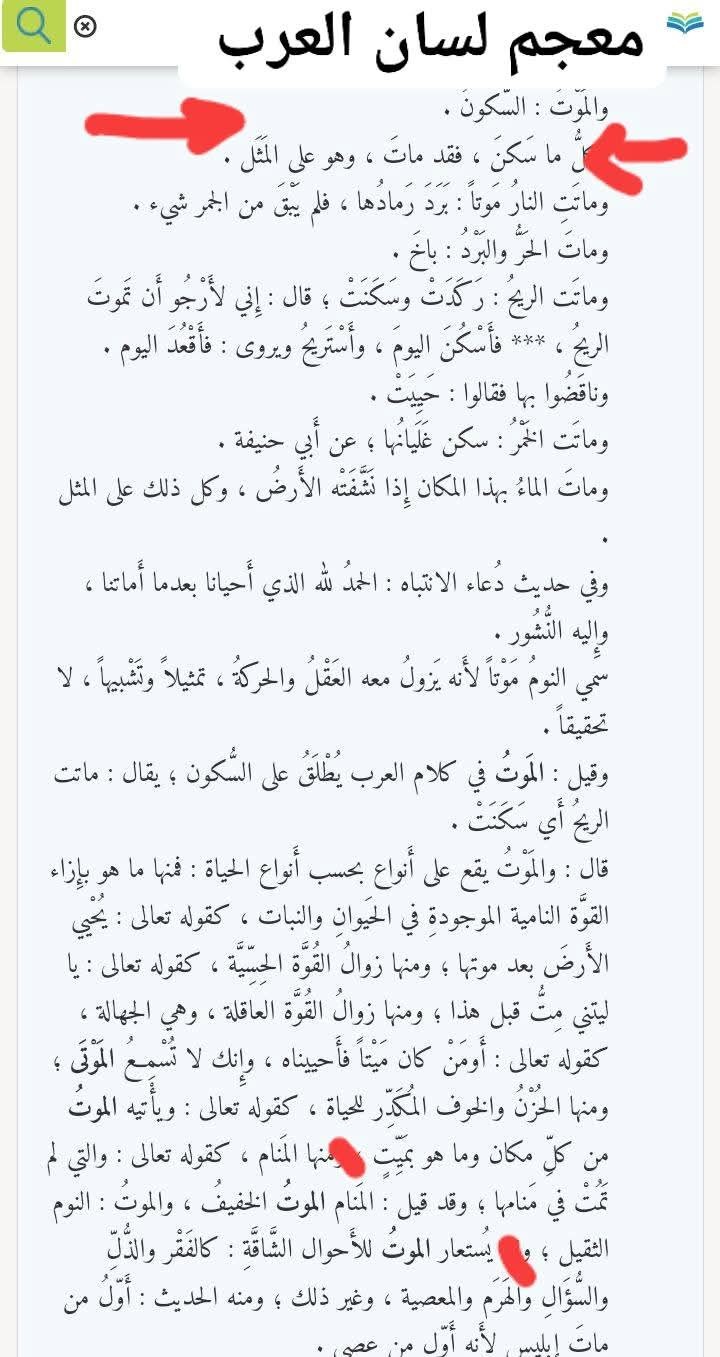 معجم لسان العرب
والمَوْتُ : السُّكونُ .
ما سَكنَ ، فقد ماتَ ، وهو على المَثَل .
وماتَتِ النارُ مَوتاً : بَرَدَ رَمادُها ، فلم يَبْقَ من الجمر شيء .
وماتَ الحَرُّ والبَرْدُ : باخَ .
وماتَت الريحُ : رَكَدَتْ وسَكَنَتْ ؛ قال : إِني لأَرْجُو أَن تَموتَ
الريحُ ، *** فأَسْكُنَ اليومَ ، وأَسْتَريحُ ويروى : فأَقْعُدَ اليوم .
وناقَضُوا بها فقالوا : حَيِيَتْ .
وماتَت الخَمْرُ : سكن غَلَيانُها ؛ عن أَبي حنيفة .
وماتَ الماءُ بهذا المكان إِذا نَشَّفَتْه الأَرضُ ، وكل ذلك على المثل
.
وفي حديث دُعاء الانتباه : الحمدُ لله الذي أَحيانا بعدما أَماتنا ،
وإِليه النُّشُور .
سمي النومُ مَوْتاً لأَنه يَزولُ معه العَقْلُ والحركةُ ، تمثيلاً وتَشْبيهاً ، لا
تحقيقاً .
وقيل : المَوتُ في كلام العرب يُطْلَقُ على السُّكون ؛ يقال : ماتت
الريحُ أَي سَكَنَتْ .
قال : والمَوْتُ يقع على أَنواع بحسب أَنواع الحياة : فمنها ما هو بإِزاء
القوَّة النامية الموجودةِ في الحَيوانِ والنبات ، كقوله تعالى : يُحْيي
الأَرضَ بعد موتها ؛ ومنها زوالُ القُوَّة الحِسِّيَّة ، كقوله تعالى : يا
ليتني مِتُّ قبل هذا ؛ ومنها زوالُ القُوَّة العاقلة ، وهي الجهالة ،
كقوله تعالى : أَومَنْ كان مَيْتاً فأَحييناه ، وإِنك لا تُسْمِعُ المَوْتَى ؛
ومنها الحُزْنُ والخوف المُكَدِّر للحياة ، كقوله تعالى : ويأْتيه الموتُ
من كلِّ مكان وما هو بمَيِّتٍ ؛ ومنها المَنام ، كقوله تعالى : والتي لم
تَمُتْ في مَنامها ؛ وقد قيل : المَنام الموتُ الخفيفُ ، والموتُ : النوم
الثقيل ؛ و يُستعار الموتُ للأَحوال الشَّاقَّةِ : كالفَقْر والذُّلِّ
والسُّؤَالِ والهَرَم والمعصية ، وغير ذلك ؛ ومنه الحديث : أَوّلُ من
ماتَ إِبليس لأَنه أَوّل من عصى .